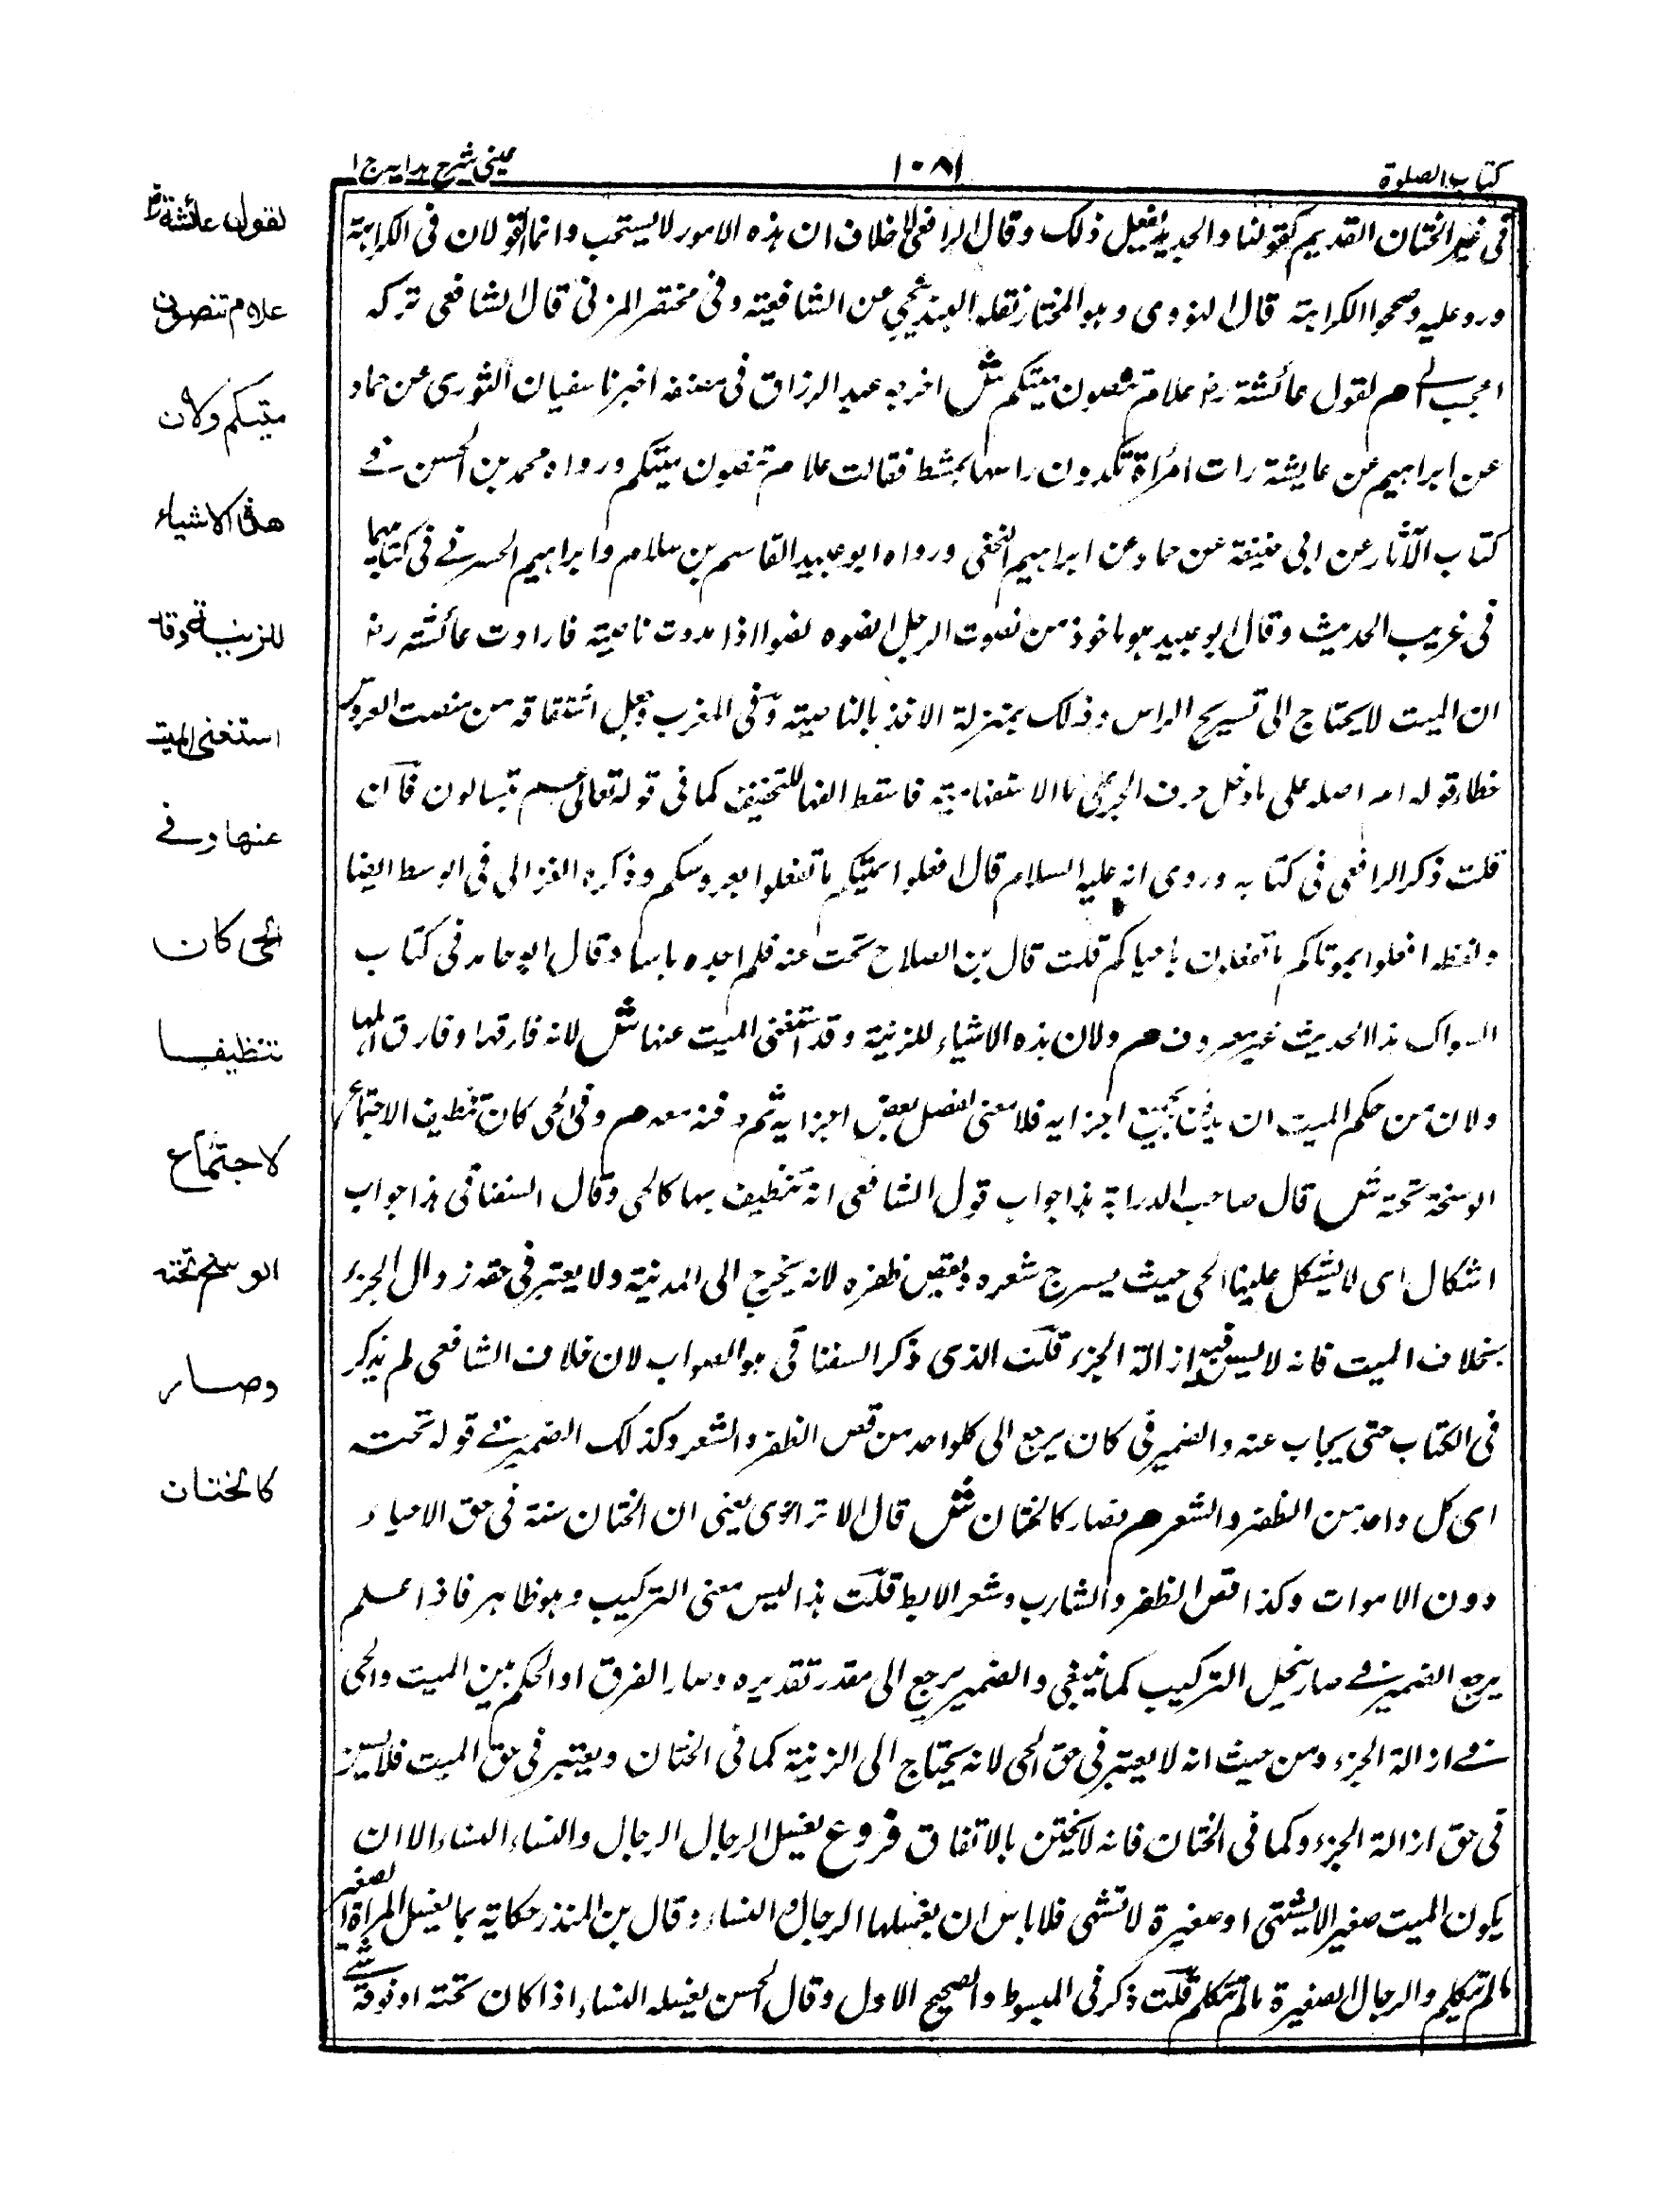 كتاب الصلوة
١٠٨١
عینی شرح ہدایہ ج ١
فی غیر الختان القدیم کقولنا والجدید یفعل ذلک وقال الرافعی لا خلاف ان ہذہ الامور لا یستحب وانما القولان فی الکراہۃ
ورد علیہ وصححوا الکراہۃ قال النووی وہو المختار نقلہ البندنیجی عن الشافعیۃ وفی مختصر المزنی قال الشافعی ترکہ
اعجب الے م لقول عائشۃ رض علام تنصون میتکم ش اخرجہ عبد الرزاق فی مصنفہ اخبرنا سفیان الثوری عن حماد
عن ابراہیم عن عایشۃ رات امراۃ یکدون راسہا بمشط فقالت علام تنصون میتکم ورواہ محمد بن الحسن فے
کتاب الآثار عن ابی حنیفۃ عن حماد عن ابراہیم النخعی ورواہ ابو عبید القاسم بن سلام وابراہیم الحربے فی کتابیہما
فی غریب الحدیث وقال ابو عبید ہو ماخوذ من نصوت الرجل انصوہ نصوا اذا مددت ناصیتہ فارادت عائشۃ رض
ان المیت لا یحتاج الی تسریح الراس وذلک بمنزلۃ الاخذ بالناصیۃ وفی المغرب وجعل اشتقاقہ من منصت العروس
خطا وقولہ اصلہ علی ما دخل حرف الجر علی ما الاستفہامیۃ فاسقط الفہا للتخفیف کما فی قولہ تعالی عم یتسالون فان
قلت ذکر الرافعی فی کتابہ وروی انہ علیہ السلام قال افعلوا بمیتکم ما تفعلوا بعروسکم وذکرہ الغزالی فی الوسط ایضا
ولفظہ افعلوا بموتاکم ما تفعلون باحیاکم قلت قال بن الصلاح بحثت عنہ فلم اجدہ باسنا وقال ابو حامد فی کتاب
السواک ہذا الحدیث غیر معروف م ولان ہذہ الاشیاء للزینۃ وقد استغنی المیت عنہا ش لانہ فارقہا وفارق اہلہا
ولان من حکم المیت ان یدفن بجمیع اجزایہ فلا معنی لفصل بعض اجزایہ ثم دفنہ معہ م وفی الحی کان تنظیف الاجتماع
الوسخۃ تحتہ ش قال صاحب الدرایۃ ہذا جواب قول الشافعی انہ تنظیف بہا کالحی وقال السغناقی ہذا جواب
اشکال ای لا یشکل علینا الحی حیث یسرح شعرہ ویقص ظفرہ لانہ یخرج الی المدینۃ ولا یعتبر فی حقہ زوال الجزء
بخلاف المیت فانہ لا یسن فیہ ازالۃ الجزء قلت الذی ذکر السغناقی ہو الصواب لان خلاف الشافعی لم یذکر
فی الکتاب حتی یجاب عنہ والضمیر فی کان یرجع الی کلواحد من قص الظفر والشعر وکذلک الضمیر فے قولہ تحتہ
ای کل واحد من الظفر والشعر م فصار کالختان ش قال الاترازی یعنی ان الختان سنۃ فی حق الاحیاء
دون الاموات وکذا قص الظفر والشارب وشعر الابط قلت ہذا لیس معنی الترکیب وہو ظاہر فاذا علم
یرجع الضمیر فے صار ینحل الترکیب کما ینبغی والضمیر یرجع الی مقدر تقدیرہ وصار الفرق او الحکم بین المیت والحی
فے ازالۃ الجزء ومن حیث انہ لا یعتبر فی حق الحی لانہ یحتاج الی الزینۃ کما فی الختان ویعتبر فی حق المیت فلا یسن
فی حق ازالۃ الجزء وکما فی الختان فانہ لا یختن بالاتفاق فروع یغسل الرجال الرجال والنساء النساء الا ان
یکون المیت صغیرا لا یشتہی او صغیرۃ لا تشتہی فلا باس ان یغسلہا الرجال والنساء وقال بن المنذر حکایۃ بما یغسل المراۃ الصغیر
مالم یتکلم والرجال الصغیرۃ مالم تتکلم قلت ذکر فی المبسوط والصحیح الاول وقال الحسن یغسلہ النساء اذا کان تحتہ او فوقہ شے
لقول عائشة رض
علام تنصون
میتکم ولان
هذه الاشیاء
للزینة وقد
استغنی المیت
عنها وفے
الحی کان
تنظیفا
لاجتماع
الوسخ تحته
وصار
کالختان